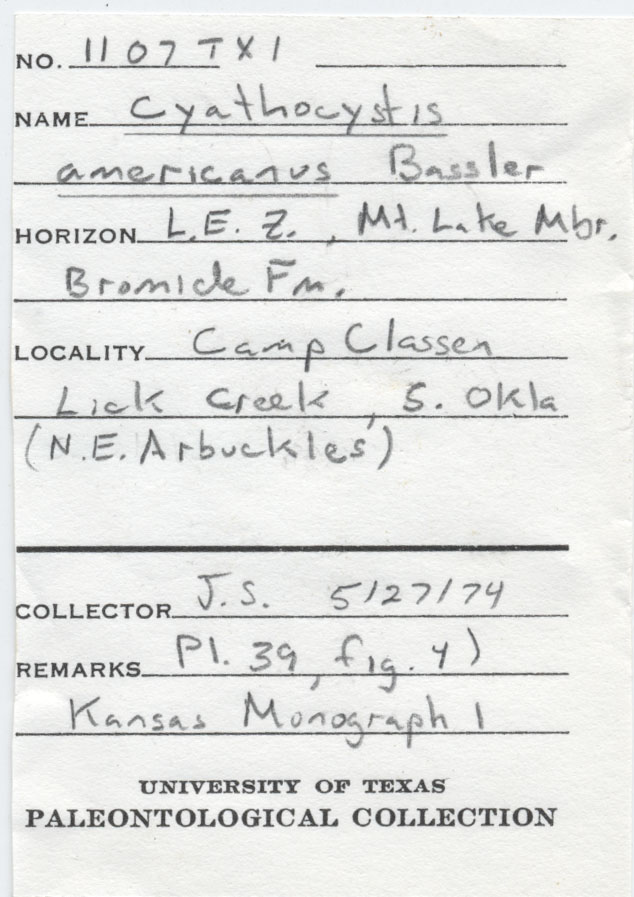 NO. 1107TX1
NAME Cyathocystis
americanus Bassler
HORIZON L.E.Z., Mt. Lake Mbr.
Bromide Fm.
LOCALITY Camp Classen
Lick Creek, S. Okla
(N.E. Arbuckles)
COLLECTOR J.S. 5/27/74
REMARKS Pl. 39, fig. 4)
Kansas Monograph 1
UNIVERSITY OF TEXAS
PALEONTOLOGICAL COLLECTION